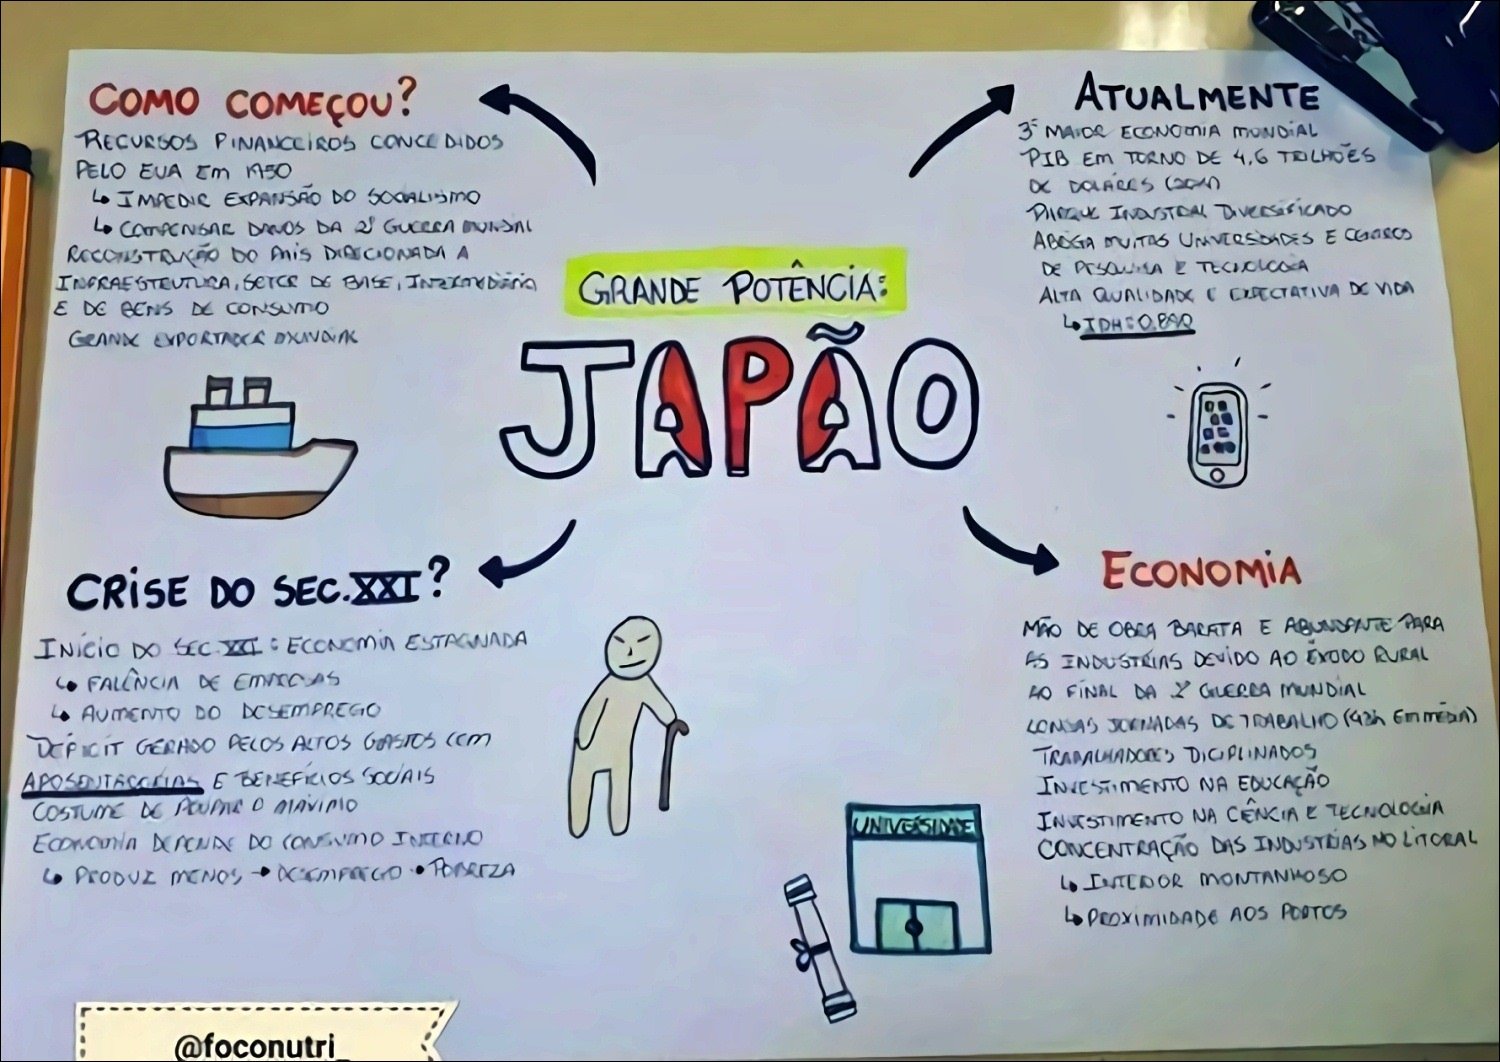 COMO COMEÇOU?
RECURSOS FINANCEIROS CONCEDIDOS
PELO EUA EM 1950
↳ IMPEDIR EXPANSÃO DO SOCIALISMO
↳ COMPENSAR DANOS DA 2ª GUERRA MUNDIAL
RECONSTRUÇÃO DO PAIS DIRECIONADA A
INFRAESTRUTURA, SETOR DE BASE, INTERMEDIÁRIA
E DE BENS DE CONSUMO
GRANDE EXPORTADOR MUNDIAL
ATUALMENTE
3ª MAIOR ECONOMIA MUNDIAL
PIB EM TORNO DE 4,6 TRILHÕES
DE DOLÁRES
PARQUE INDUSTRIAL DIVERSIFICADO
ABRIGA MUITAS UNIVERSIDADES E CENTROS
DE PESQUISA E TECNOLOGIA
ALTA QUALIDADE E EXPECTATIVA DE VIDA
↳ IDH:
GRANDE POTÊNCIA:
JAPÃO
CRISE DO SEC. XXI?
INÍCIO DO SEC. XXI: ECONOMIA ESTAGNADA
↳ FALÊNCIA DE EMPRESAS
↳ AUMENTO DO DESEMPREGO
DÉFICIT GERADO PELOS ALTOS GASTOS COM
APOSENTADORIAS E BENEFÍCIOS SOCIAIS
COSTUME DE POUPAR O MÁXIMO
ECONOMIA DEPENDE DO CONSUMO INTERNO
↳ PRODUZ MENOS → DESEMPREGO → POBREZA
ECONOMIA
MÃO DE OBRA BARATA E ABUNDANTE PARA
AS INDUSTRÍAS DEVIDO AO ÊXODO RURAL
AO FINAL DA 2ª GUERRA MUNDIAL
LONGAS JORNADAS DE TRABALHO (43h EM MÉDIA)
TRABALHADORES DICIPLINADOS
INVESTIMENTO NA EDUCAÇÃO
INVESTIMENTO NA CIÊNCIA E TECNOLOGIA
CONCENTRAÇÃO DAS INDUSTRÍAS NO LITORAL
↳ INTERIOR MONTANHOSO
↳ PROXIMIDADE AOS PORTOS
UNIVERSIDADE
@foconutri_